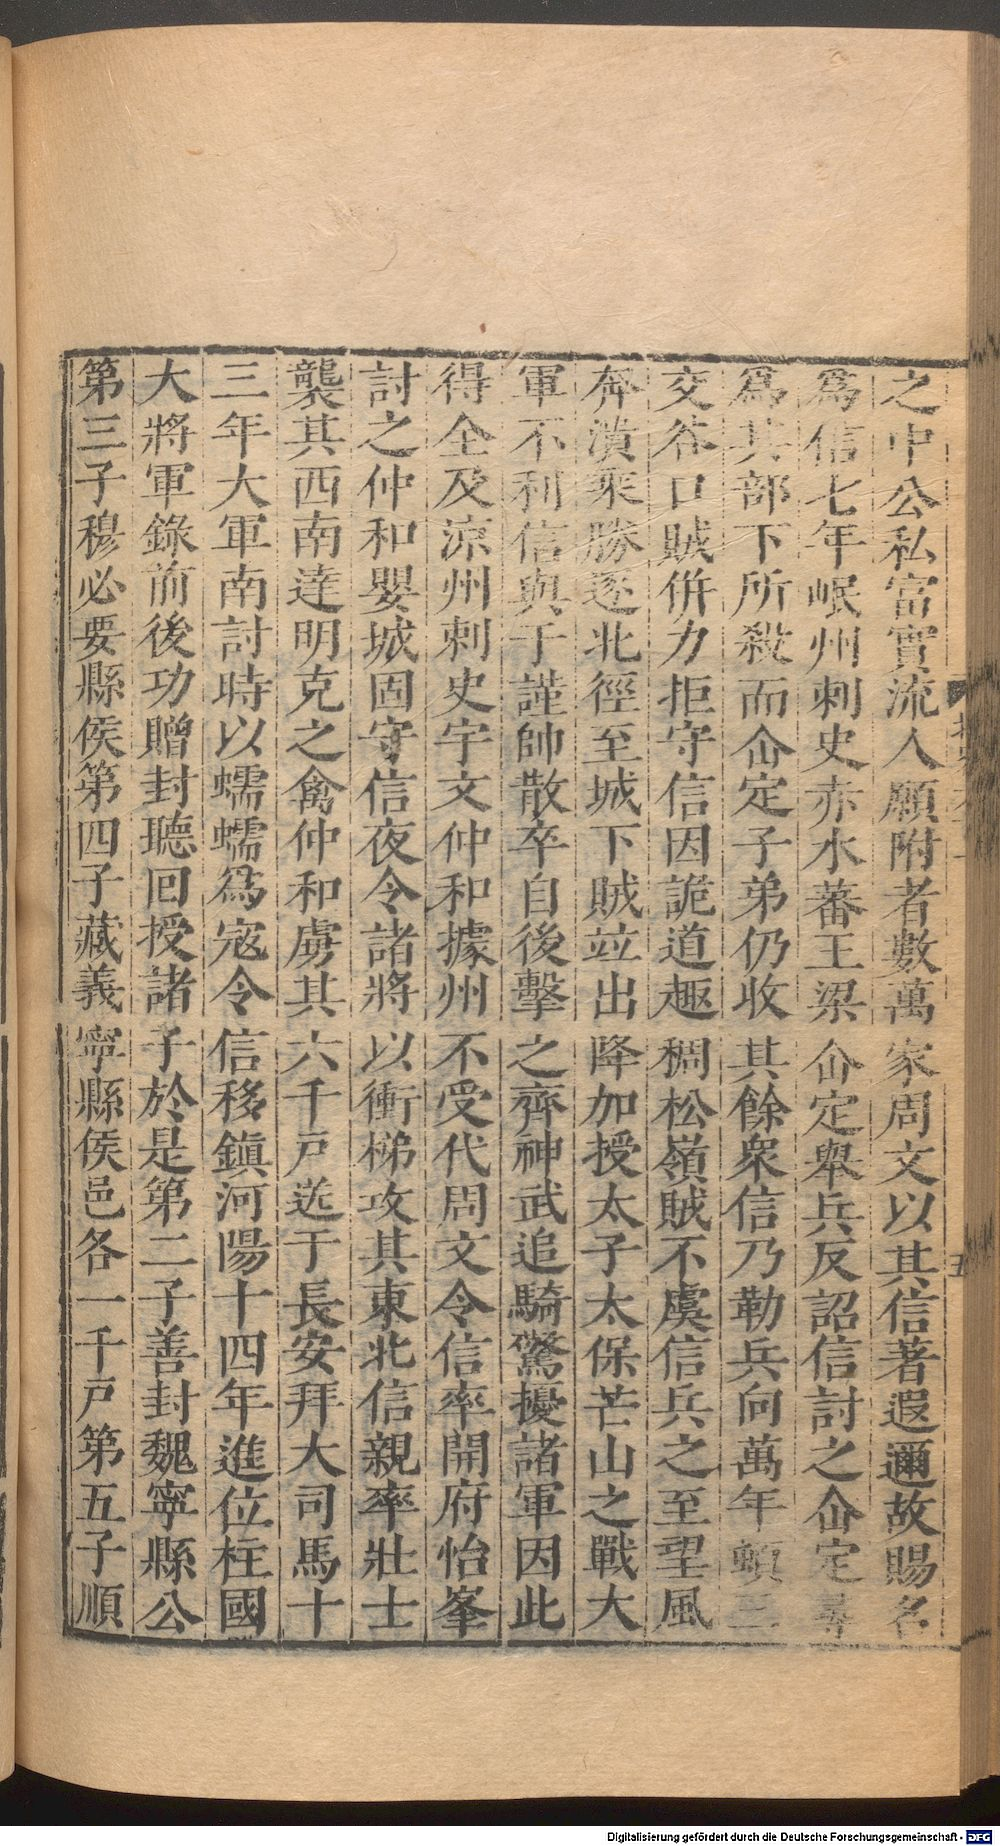 之中公私富實流人願附者數萬家周文以其信著遐邇故賜名
爲信七年岷州刺史赤水蕃王梁仚定舉兵反詔信討之仚定尋
爲其部下所殺而仚定子弟仍收其餘衆信乃勒兵向萬年頓三
交谷口賊併力拒守信因詭道趣稠松嶺賊不虞信兵之至望風
奔潰乘勝逐北徑至城下賊竝出降加授太子太保芒山之戰大
軍不利信與于謹帥散卒自後擊之齊神武追騎驚擾諸軍因此
得全及涼州刺史宇文仲和據州不受代周文令信率開府怡峯
討之仲和嬰城固守信夜令諸將以衝梯攻其東北信親率壯士
襲其西南達明克之禽仲和虜其六千戸送于長安拜大司馬十
三年大軍南討時以蠕蠕爲寇令信移鎮河陽十四年進位柱國
大將軍錄前後功贈封聽回授諸子於是第二子善封魏寧縣公
第三子穆必要縣侯第四子藏義寧縣侯邑各一千戸第五子順
五
Digitalisierung gefördert durch die Deutsche Forschungsgemeinschaft - DFG